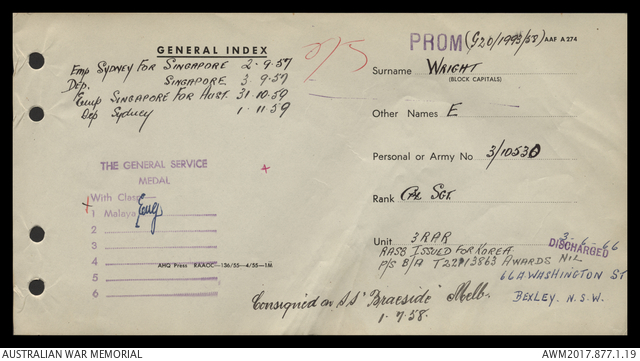 GENERAL INDEX
Emp SYDNEY FOR SINGAPORE 2.9.57
Dep. SINGAPORE 3 9.57
Emp SINGAPORE FOR AUST. 31.10.59
Dep Sydney 1.11.59
THE GENERAL SERVICE
MEDAL
With Clasp
1 Malaya
2
3
4
5
6
AHQ Press RAAOC—136/55—4/55—1M
PROM (G20/1993/58) AAF A274
Surname WRIGHT
(BLOCK CAPITALS)
Other Names E
Personal or Army No 3/10530
Rank Sgt.
Unit 3 RAR
RASB ISSUED FOR KOREA
P/S B/A T22913863 AWARDS NIL
DISCHARGED
66A WASHINGTON ST
BEXLEY. N.S.W.
Consigned on S.S "Braeside" Melb.
1.7.58.
AUSTRALIAN WAR MEMORIAL
AWM2017.877.1.19